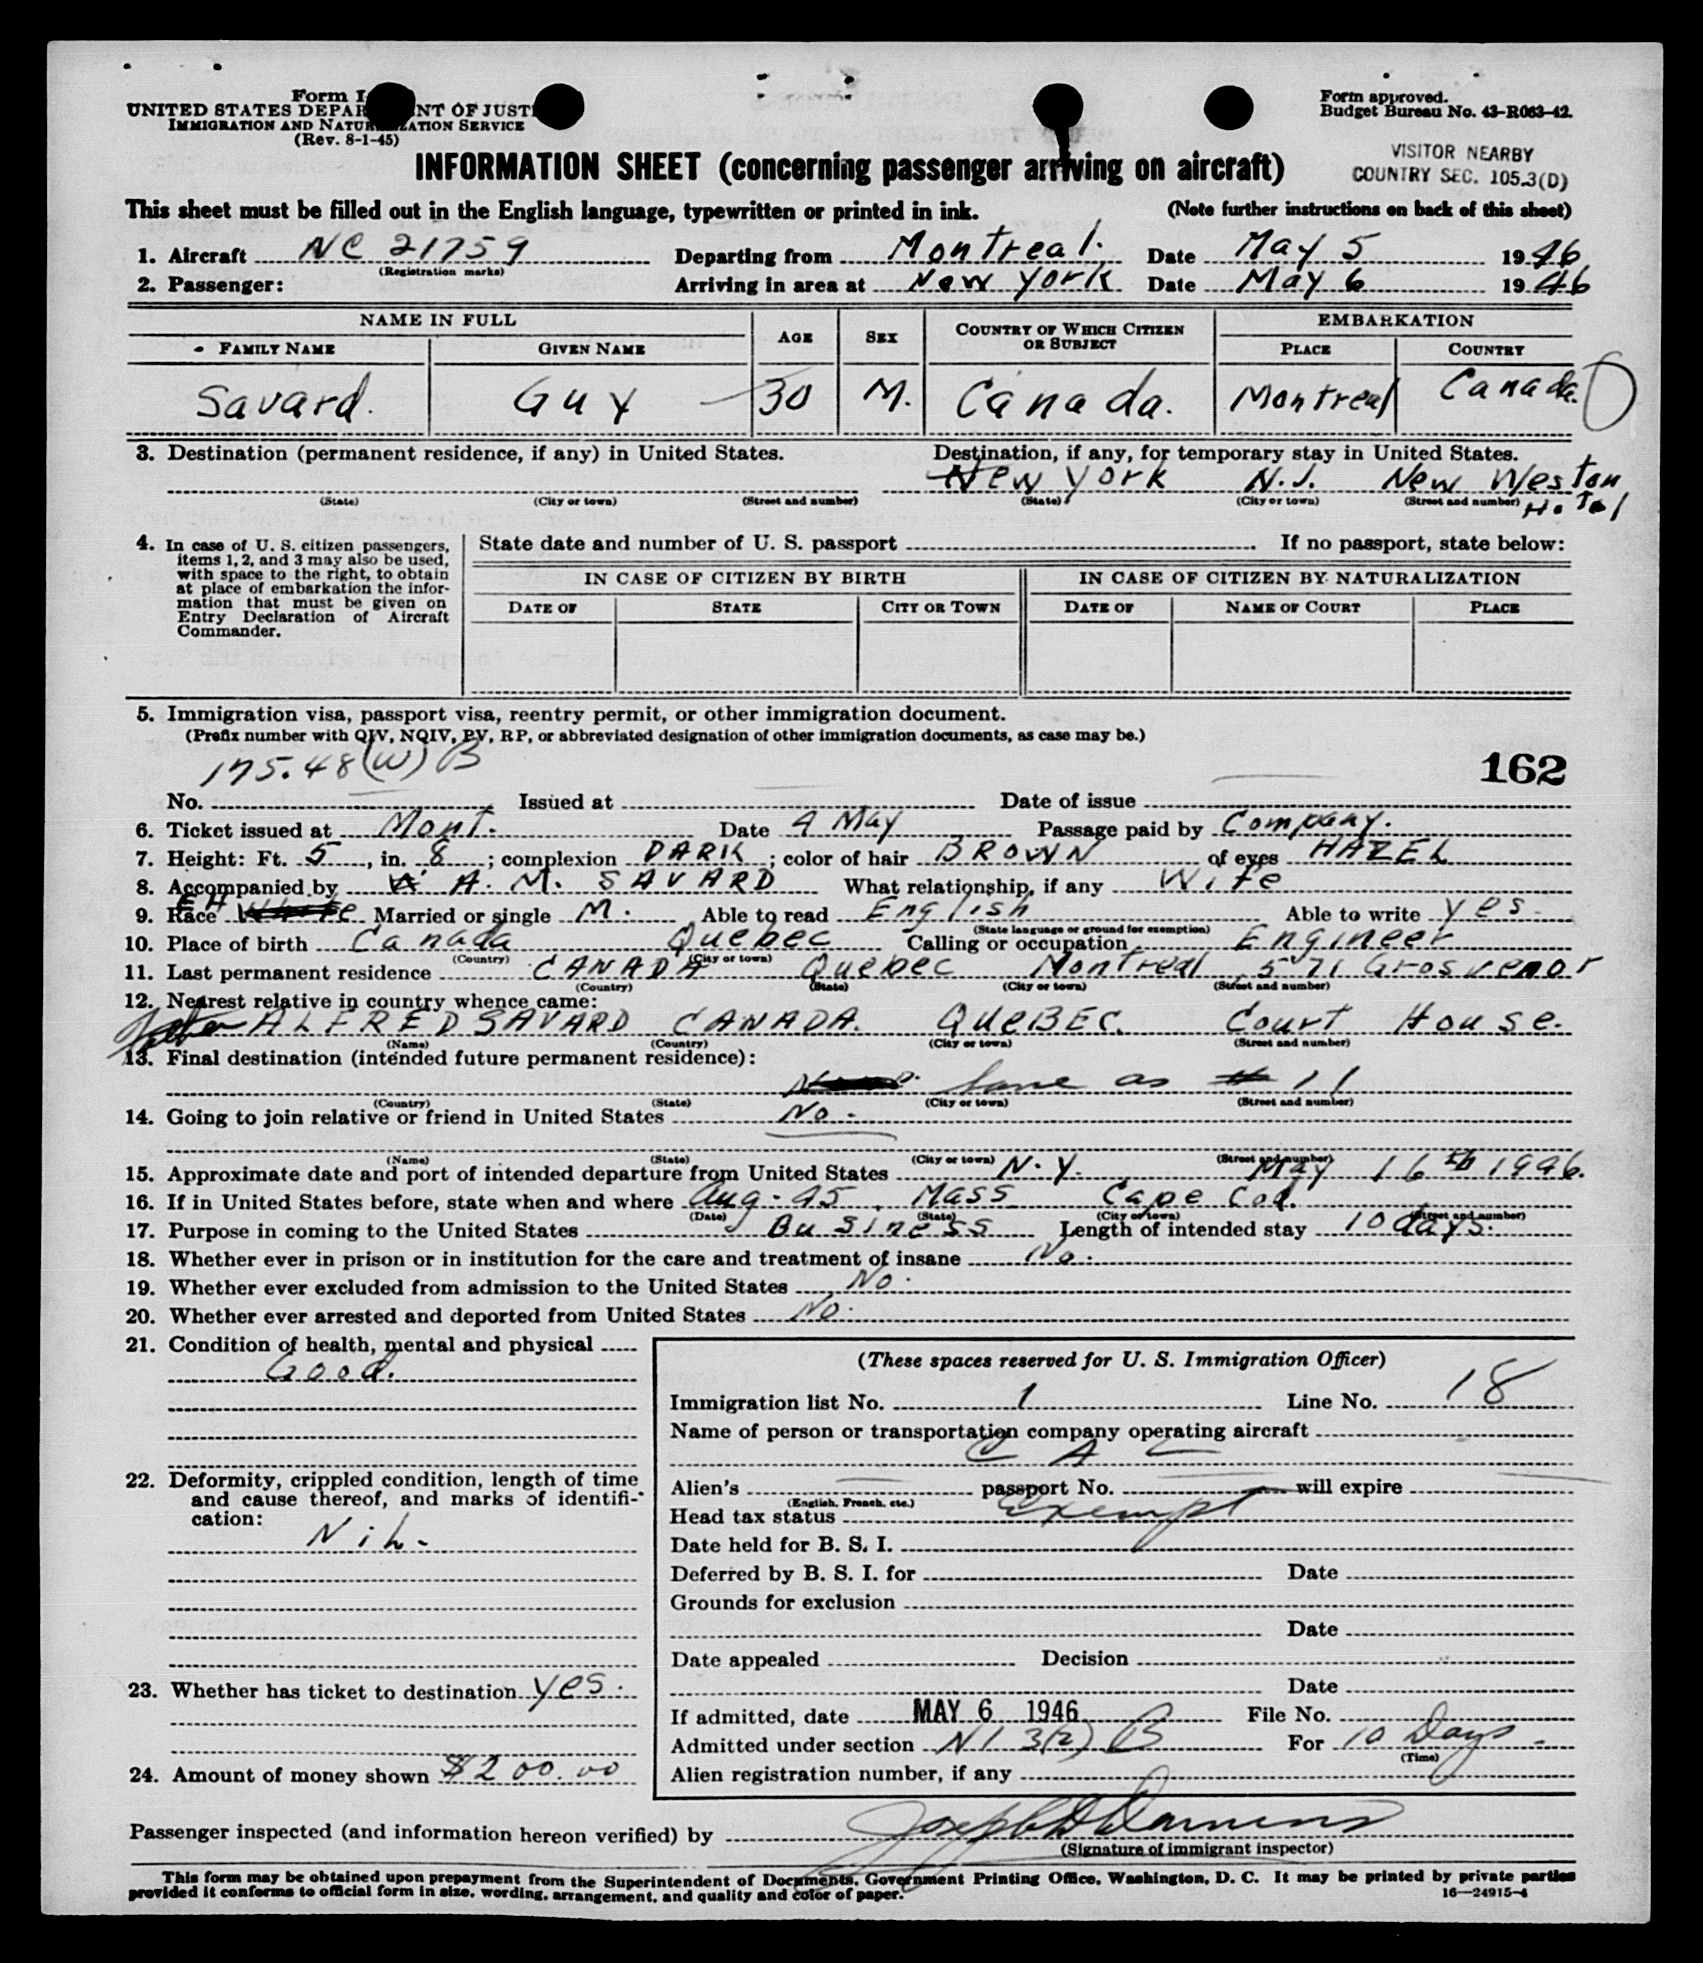 Form I-
UNITED STATES DEPAR NT OF JUST
IMMIGRATION AND NATURALIZATION SERVICE
(Rev. 8-1-45)
Form approved.
Budget Bureau No. 43-R063-42.
VISITOR NEARBY
COUNTRY SEC. 105.3(D)
INFORMATION SHEET (concerning passenger arriving on aircraft)
This sheet must be filled out in the English language, typewritten or printed in ink. (Note further instructions on back of this sheet)
1. Aircraft NC 21759 Departing from Montreal. Date May 5 1946
(Registration marks)
2. Passenger: Arriving in area at New York Date May 6 1946
NAME IN FULL AGE SEX COUNTRY OF WHICH CITIZEN OR SUBJECT EMBARKATION
FAMILY NAME GIVEN NAME PLACE COUNTRY
Savard. Guy 30 M. Canada. Montreal Canada.
3. Destination (permanent residence, if any) in United States. Destination, if any, for temporary stay in United States.
New York N.J. New Weston Hotel
(State) (City or town) (Street and number) (State) (City or town) (Street and number)
4. In case of U. S. citizen passengers, items 1, 2, and 3 may also be used, with space to the right, to obtain at place of embarkation the information that must be given on Entry Declaration of Aircraft Commander.
State date and number of U. S. passport If no passport, state below:
IN CASE OF CITIZEN BY BIRTH IN CASE OF CITIZEN BY NATURALIZATION
DATE OF STATE CITY OR TOWN DATE OF NAME OF COURT PLACE
5. Immigration visa, passport visa, reentry permit, or other immigration document.
(Prefix number with QIV, NQIV, PV, RP, or abbreviated designation of other immigration documents, as case may be.)
175.48(W) B
162
No. Issued at Date of issue
6. Ticket issued at Mont. Date 4 May Passage paid by Company.
7. Height: Ft. 5, in. 8; complexion DARK; color of hair BROWN of eyes HAZEL
8. Accompanied by A. M. SAVARD What relationship, if any Wife
9. Race EH White Married or single M. Able to read English Able to write yes.
(State language or ground for exemption)
10. Place of birth Canada Quebec Calling or occupation Engineer
(Country) (City or town)
11. Last permanent residence CANADA Quebec Montreal, 571 Grosvenor
(Country) (State) (City or town) (Street and number)
12. Nearest relative in country whence came:
ALFRED SAVARD CANADA. QUEBEC. Court House.
(Name) (Country) (City or town) (Street and number)
13. Final destination (intended future permanent residence):
Same as # 11
(Country) (State) (City or town) (Street and number)
14. Going to join relative or friend in United States No.
(Name) (State) (City or town) (Street and number)
15. Approximate date and port of intended departure from United States N.Y. May 16th 1946.
16. If in United States before, state when and where Aug-45, Mass Cape Cod.
(Date) (State) (City or town) (Street and number)
17. Purpose in coming to the United States Business Length of intended stay 10 days.
18. Whether ever in prison or in institution for the care and treatment of insane No.
19. Whether ever excluded from admission to the United States No.
20. Whether ever arrested and deported from United States No.
21. Condition of health, mental and physical
Good.
22. Deformity, crippled condition, length of time and cause thereof, and marks of identification:
Nil.
23. Whether has ticket to destination yes.
24. Amount of money shown $200.00
(These spaces reserved for U. S. Immigration Officer)
Immigration list No. 1 Line No. 18
Name of person or transportation company operating aircraft
C A
Alien's passport No. will expire
(English, French, etc.)
Head tax status Exempt
Date held for B. S. I.
Deferred by B. S. I. for Date
Grounds for exclusion
Date
Date appealed Decision
Date
If admitted, date MAY 6 1946 File No.
Admitted under section NI 3(2) B For 10 Days
(Time)
Alien registration number, if any
Passenger inspected (and information hereon verified) by
(Signature of immigrant inspector)
This form may be obtained upon prepayment from the Superintendent of Documents, Government Printing Office, Washington, D. C. It may be printed by private parties
provided it conforms to official form in size, wording, arrangement, and quality and color of paper.
16—24915-4